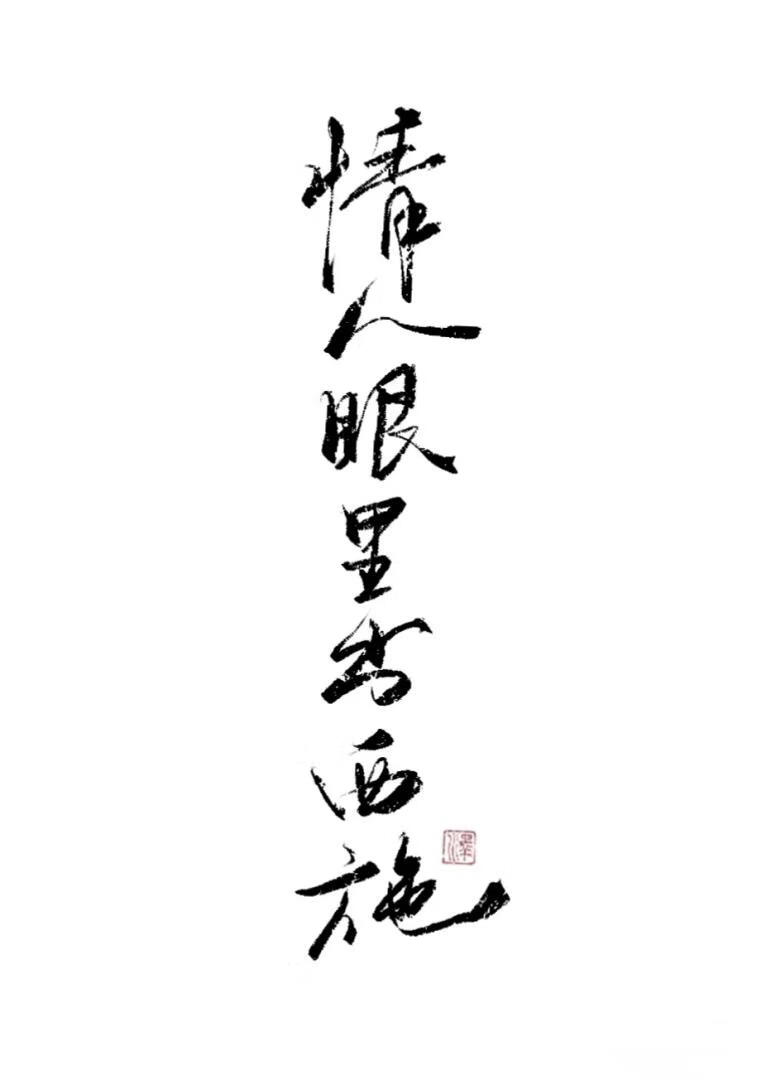 情人眼里出西施
澤